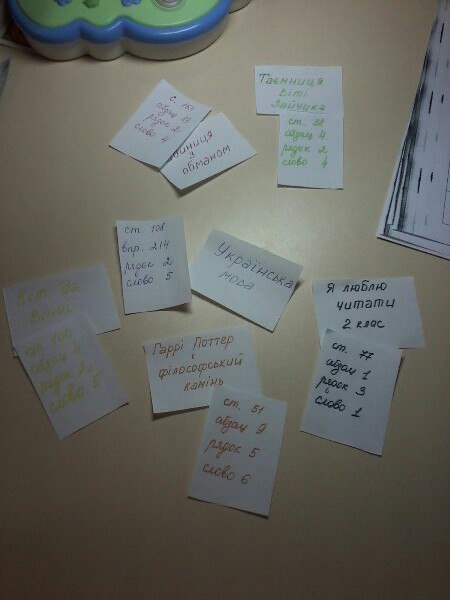 с. 151
абзац 13
рядок 2
слово 4
з
обманом
Таємниця
Віті
Зайчика
ст. 38
абзац 4
рядок 2
слово 4
ст 108
впр. 214
рядок 2
слово 5
Українська
мова
Я люблю
читати
2 клас
ст. 77
абзац 1
рядок 3
слово 1
Кіт
Вінчі
слово
Гаррі Поттер
і
філософський
камінь
ст. 51
абзац 9
рядок 5
слово 6